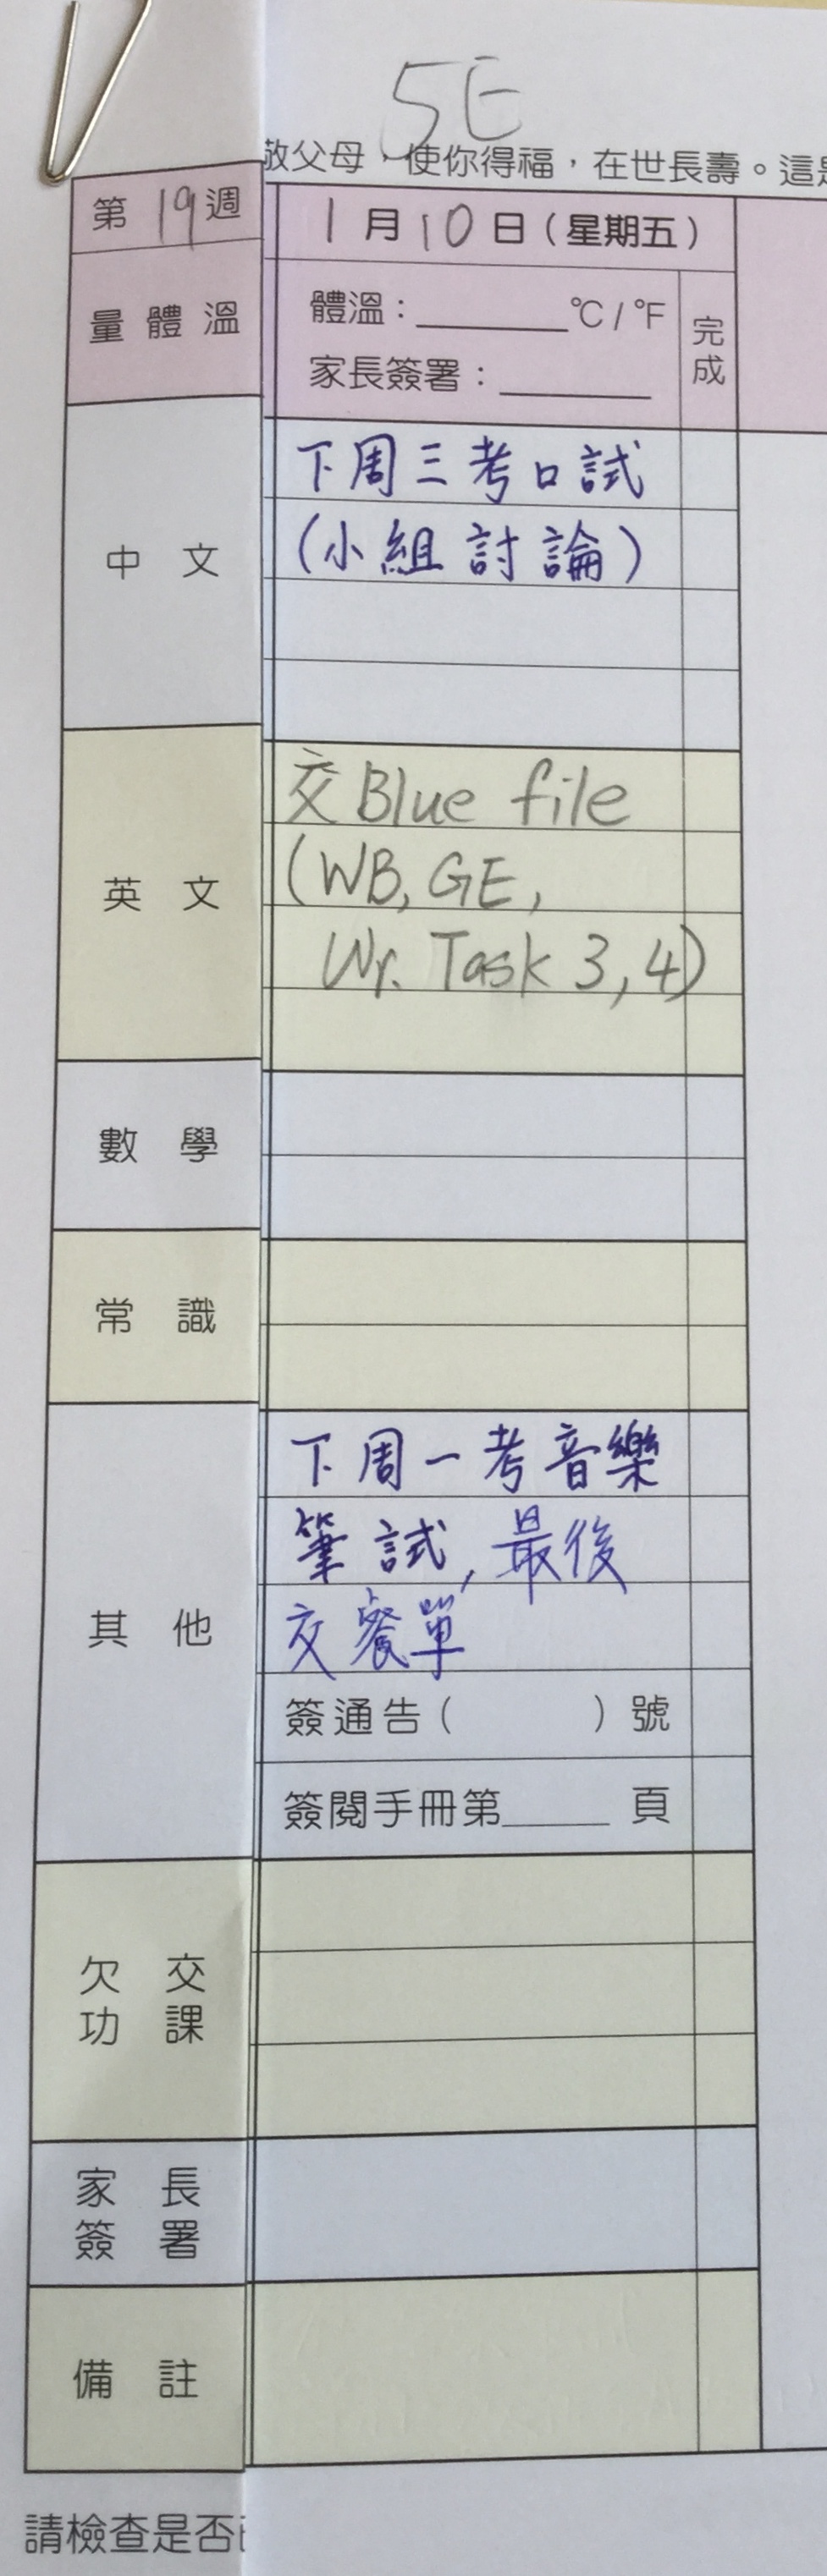 5E
敬父母，使你得福，在世長壽。這是
第19週
1月10日(星期五)
量體溫
體溫：______°C/°F
家長簽署：______
完成
中文
下周三考口試
(小組討論)
英文
交Blue file
(WB, GE,
Wr. Task 3, 4)
數學
常識
其他
下周一考音樂
筆試, 最後
交餐單
簽通告(      )號
簽閱手冊第_____頁
欠交
功課
家長
簽署
備註
請檢查是否